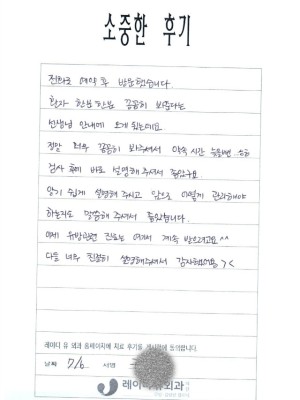 소중한 후기
전화로 예약후 방문했습니다.
환자 한분한분 꼼꼼히 보신다는
선생님 안내에 오게 됐는데요
정말 너무 꼼꼼히 봐주셔서 약속 시간
검사 후에 바로 설명해 주셔서 좋았구요.
알기 쉽게 설명해 주시고 앞으로 어떻게 관리해야
하는지도 말씀해 주셔서 좋았습니다.
이제 유방관련 진료는 여기서 계속 받으려고요^^
다들 너무 친절히 설명해주셔서 감사했어용 >_<
레이디 유 외과 홈페이지에 치료 후기를 게시함에 동의합니다.
날짜 7/6. 서명
레이디유외과